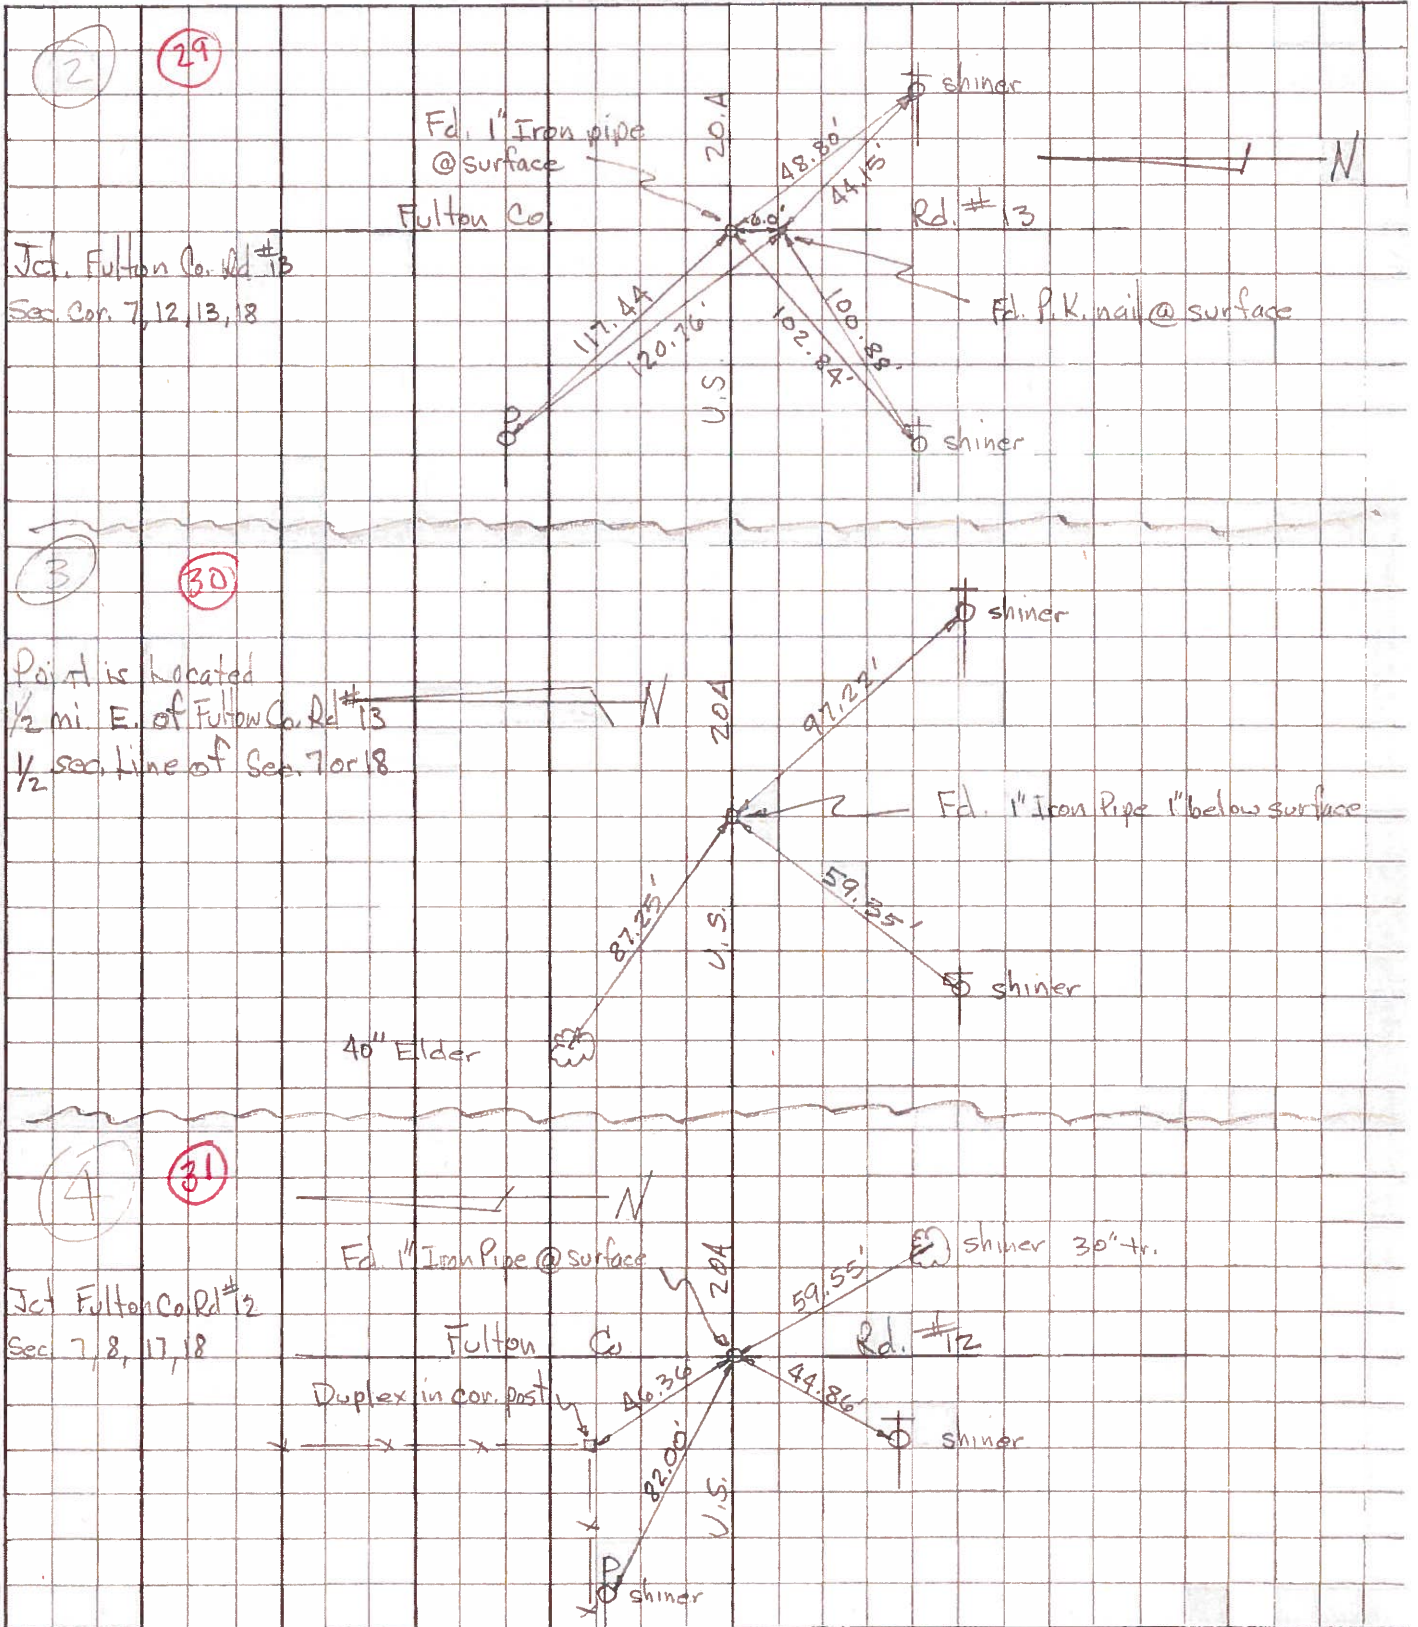 2
29
shiner
Fd. 1" Iron pipe
@ surface
20.A
48.80'
44.15'
N
Fulton Co.
6.0'
Rd. #13
Jct. Fulton Co. Rd #13
Sec. Cor. 7, 12, 13, 18
Fd. P.K. nail @ surface
117.44
120.76'
102.84'
100.88'
U.S.
shiner
3
30
shiner
Point is Located
1/2 mi. E. of Fulton Co. Rd #13
1/2 sec. Line of Sec. 7 or 18
N
20A
97.22'
Fd. 1" Iron Pipe 1" below surface
87.25'
59.35'
U.S.
shiner
40" Elder
4
31
N
Fd. 1" Iron Pipe @ surface
20A
59.55'
shiner 30" tr.
Jct Fulton Co. Rd #12
Sec 7, 8, 17, 18
Fulton Co
Rd. #12
Duplex in cor. post
46.36
44.86'
82.00'
shiner
U.S.
shiner